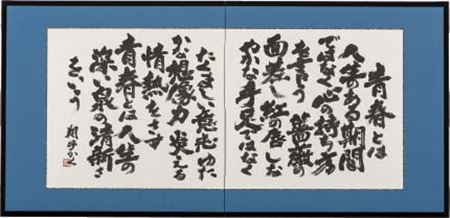 青春とは
人生のある期間
ではなく心の持ち方
を言う 薔薇の
面差し 紅の唇 しな
やかな手足ではなく
たくましい意志 ゆた
かな想像力 炎える
情熱をさす
青春とは人生の
深い泉の清新さ
をいう
翔子